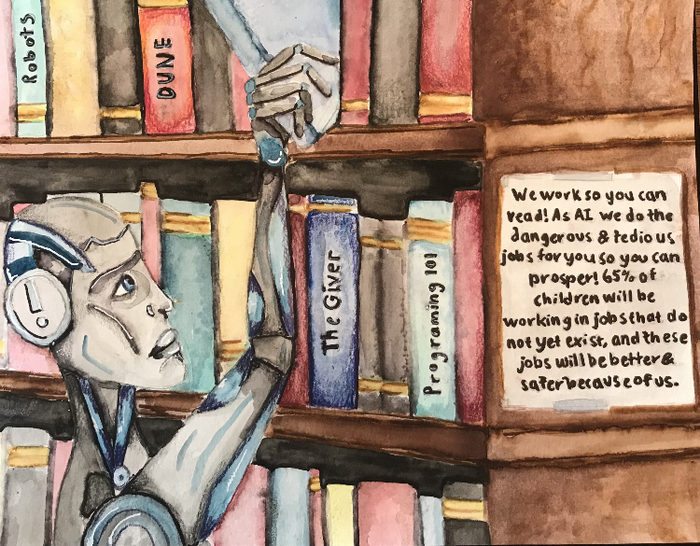 Robots
DUNE
The Giver
Programing 101
We work so you can
read! As AI we do the
dangerous & tedious
jobs for you so you can
prosper! 65% of
children will be
working in jobs that do
not yet exist, and these
jobs will be better &
safer because of us.